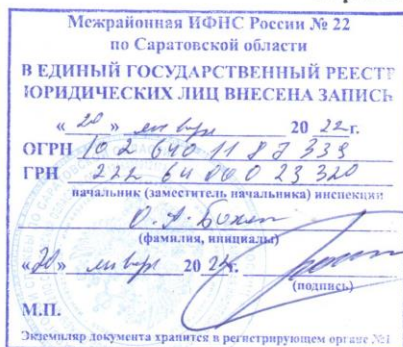 Межрайонная ИФНС России № 22
по Саратовской области
В ЕДИНЫЙ ГОСУДАРСТВЕННЫЙ РЕЕСТР
ЮРИДИЧЕСКИХ ЛИЦ ВНЕСЕНА ЗАПИСЬ
« 20 » января 20 22г.
ОГРН 102 640 11 87 339
ГРН 222 64 00 0 23 320
начальник (заместитель начальника) инспекции
О. А.
(фамилия, инициалы)
«20» января 20 22г.
(подпись)
М.П.
Экземпляр документа хранится в регистрирующем органе №1